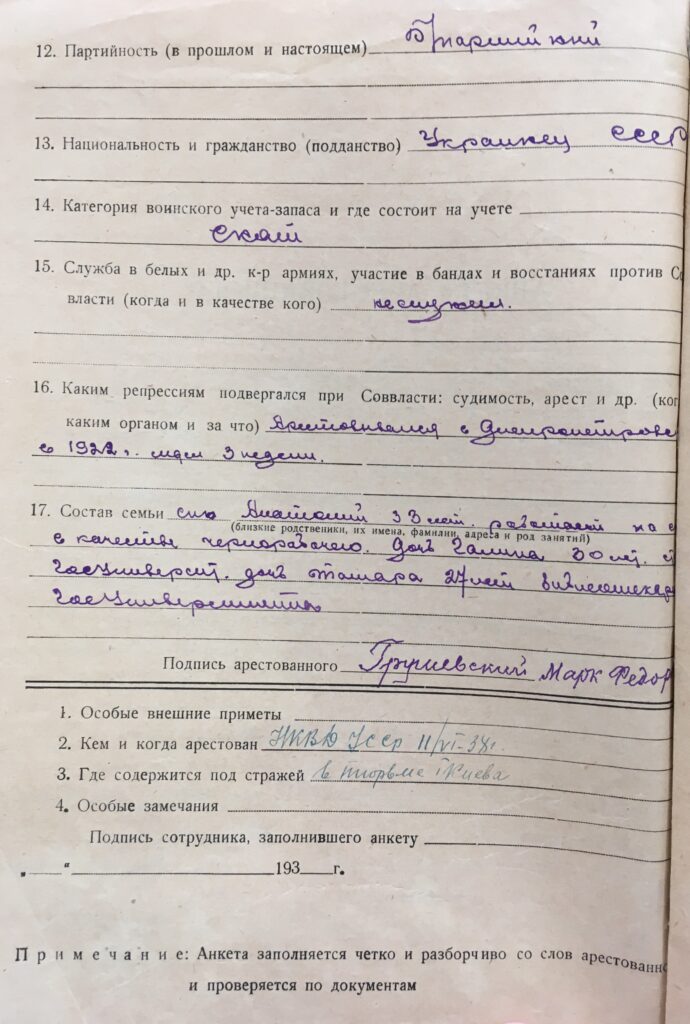 12. Партийность (в прошлом и настоящем) Б/партийный
13. Национальность и гражданство (подданство) Украинец СССР
14. Категория воинского учета-запаса и где состоит на учете
снят
15. Служба в белых и др. к-р армиях, участие в бандах и восстаниях против Со
власти (когда и в качестве кого) не служил.
16. Каким репрессиям подвергался при Соввласти: судимость, арест и др. (ког
каким органом и за что) Арестовывался в Днепропетровс
в 1922 г. 3 недели.
17. Состав семьи сын Анатолий 33 лет. работает на
(близкие родственики, их имена, фамилии, адреса и род занятий)
в качестве чернорабочего. Дочь Галина 30 лет.
Госуниверсит. дочь Тамара 27 лет библиотекар
Госуниверситета
Подпись арестованного Грушевский Марк Федор
1. Особые внешние приметы
2. Кем и когда арестован НКВД УССР 11/VI-38 г.
3. Где содержится под стражей в тюрьме г Киева
4. Особые замечания
Подпись сотрудника, заполнившего анкету
„ “ 193 г.
Примечание: Анкета заполняется четко и разборчиво со слов арестованно
и проверяется по документам